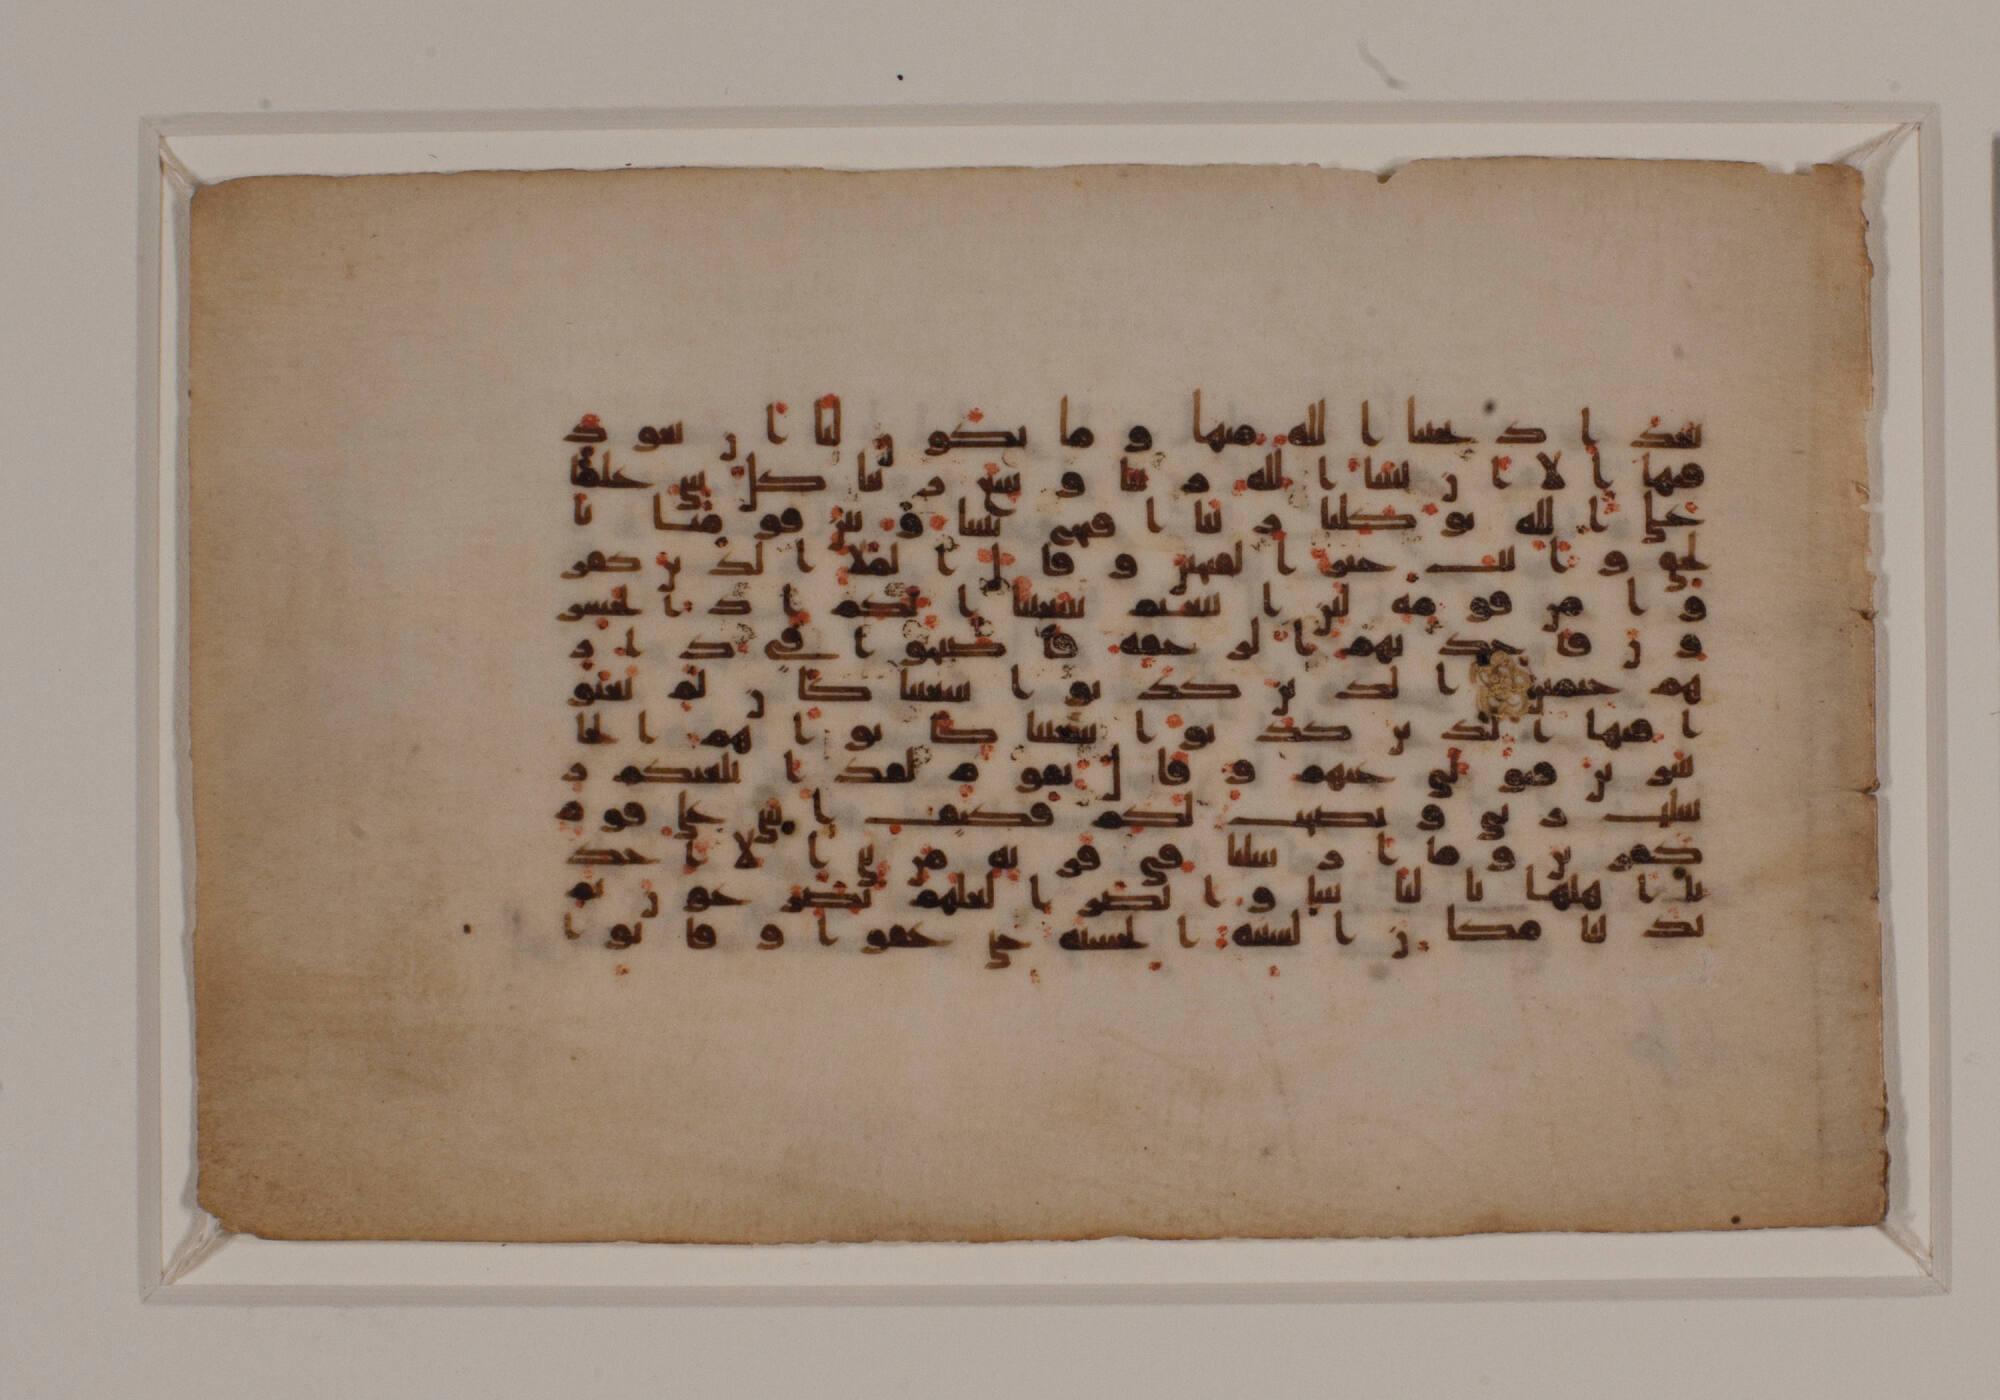 بعد اذ نجينا الله منها وما يكون لنا ان نعود
فيها الا ان يشا الله ربنا وسع ربنا كل شي علما
على الله توكلنا ربنا افتح بيننا وبين قومنا با
لحق وانت خير الفتحين وقال الملا الذين كفر
وا من قومه لئن اتبعتم شعيبا انكم اذا لخسر
ون فاخذتهم الرجفة فاصبحوا في دار
هم جثمين الذين كذبوا شعيبا كان لم يغنو
ا فيها الذين كذبوا شعيبا كانوا هم الخا
سرين فتولى عنهم وقال يقوم لقد ابلغتكم ر
سلت ربي ونصحت لكم فكيف اسى على قوم
كفرين وما ارسلنا في قرية من نبي الا اخذ
نا اهلها بالباسا والضرا لعلهم يضرعون ثم
بدلنا مكان السيئة الحسنة حتى عفوا وقالوا